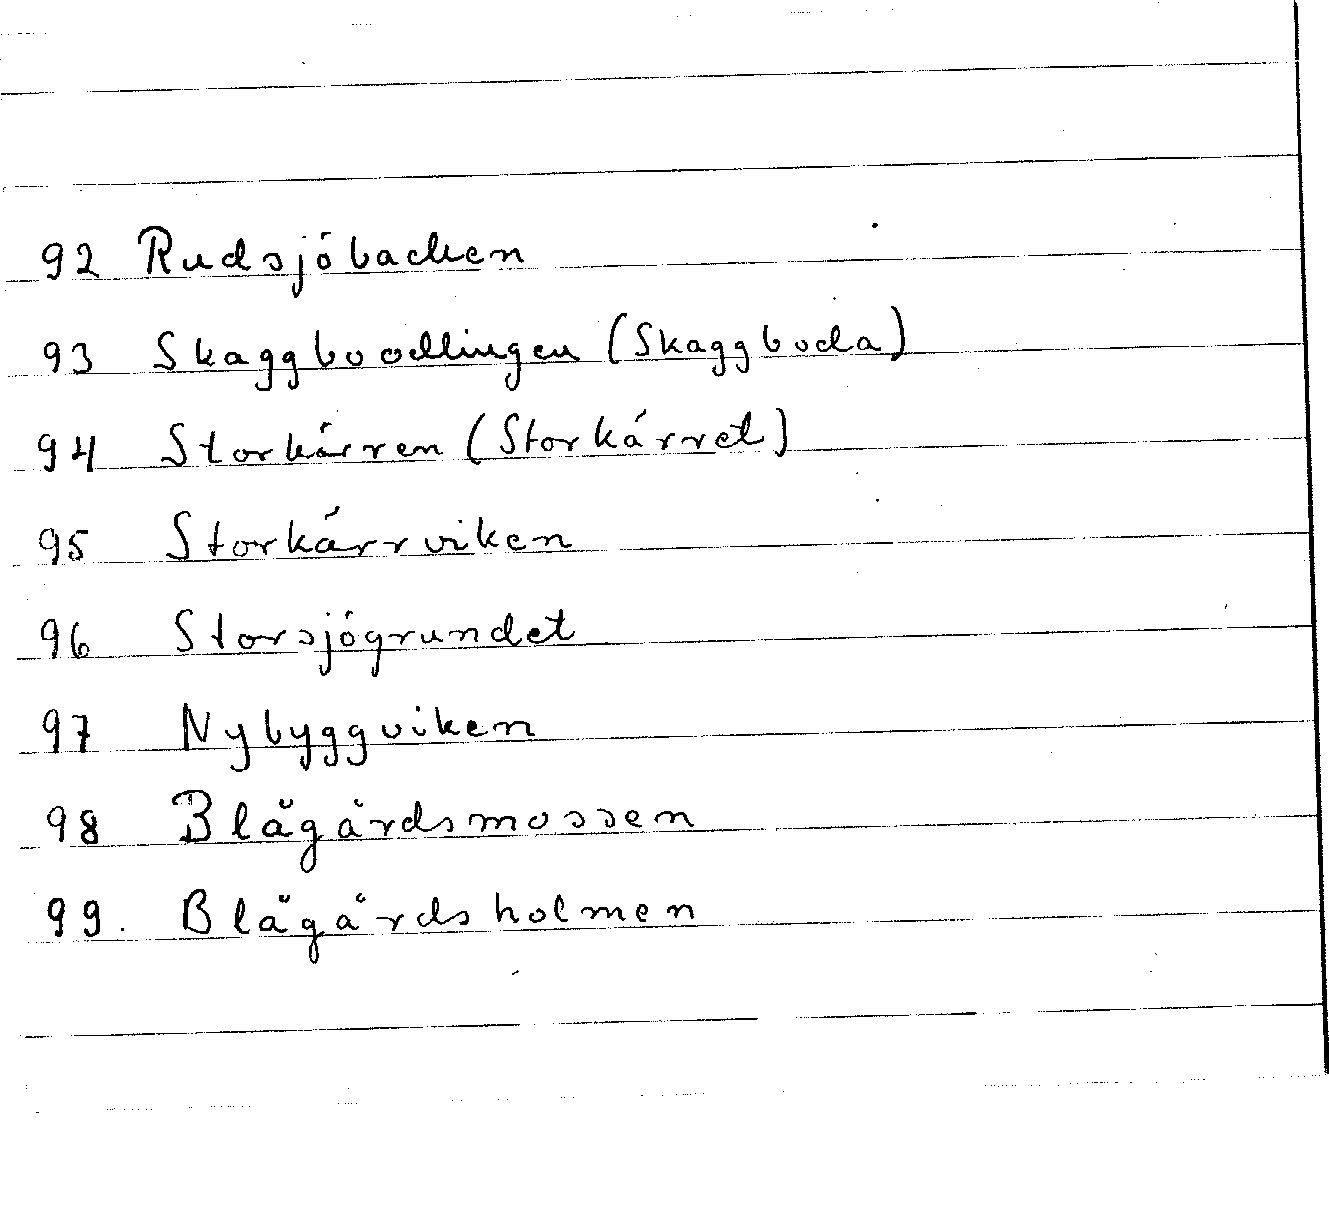 92 Rudsjöbacken
93 Skaggboodlingen (Skaggboda)
94 Storkärren (Storkärret)
95 Storkärrviken
96 Storsjögrundet
97 Nybyggviken
98 Blågårdsmossen
99. Blågårdsholmen